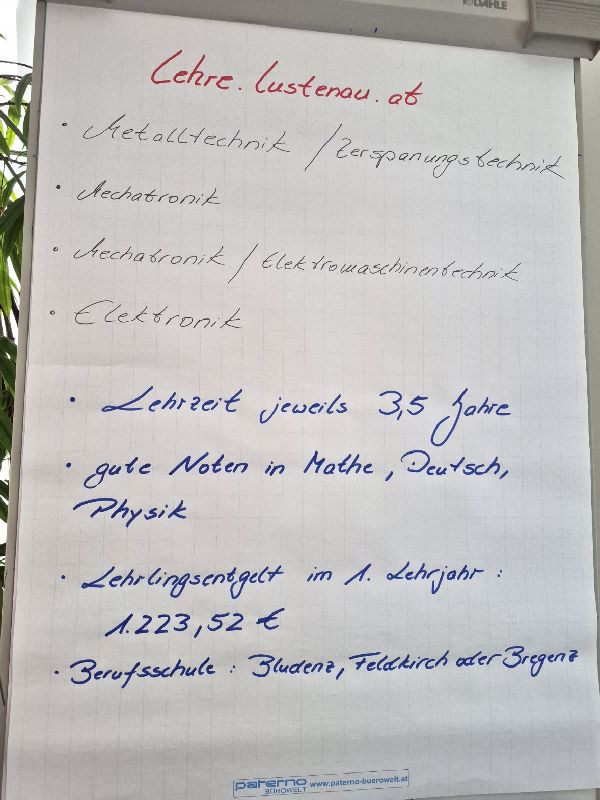 DAHLE
Lehre.lustenau.at
• Metalltechnik / Zerspanungstechnik
• Mechatronik
• Mechatronik / Elektromaschinentechnik
• Elektronik
• Lehrzeit jeweils 3,5 Jahre
• gute Noten in Mathe, Deutsch,
Physik
• Lehrlingsentgelt im 1. Lehrjahr :
1.223,52 €
• Berufsschule : Bludenz, Feldkirch oder Bregenz
paterno www.paterno-buerowelt.at
BÜROWELT